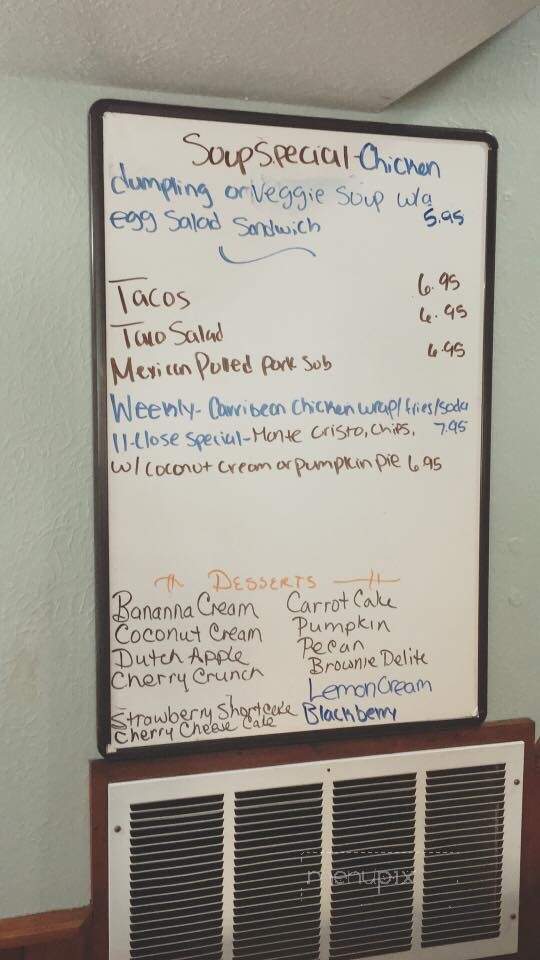 Soup Special - Chicken
dumpling or Veggie Soup w/a
egg Salad Sandwich 5.95
Tacos 6.95
Taco Salad 6.95
Mexican Pulled Pork Sub 6.95
Weekly - Carribean Chicken wrap/fries/soda
11-Close Special - Monte Cristo, chips, 7.95
w/ coconut cream or pumpkin pie 6.95
Desserts
Bananna Cream Carrot Cake
Coconut Cream Pumpkin
Dutch Apple Pecan
Cherry Crunch Brownie Delite
Lemon Cream
Strawberry Shortcake Blackberry
Cherry Cheese Cake
menupix